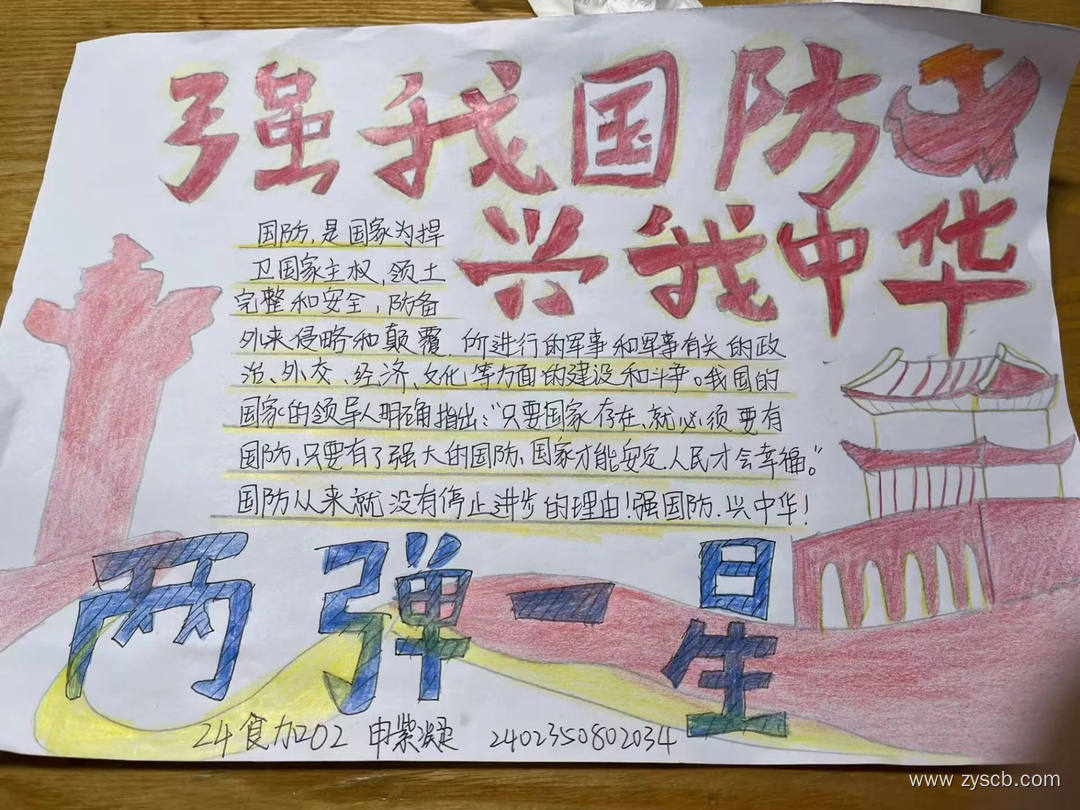 强我国防
兴我中华
国防,是国家为捍
卫国家主权,领土
完整和安全,防备
外来侵略和颠覆,所进行的军事和军事有关的政
治、外交、经济、文化等方面的建设和斗争。我国的
国家的领导人明确指出:“只要国家存在,就必须要有
国防,只要有了强大的国防,国家才能安定,人民才会幸福。”
国防从来就没有停止进步的理由!强国防.兴中华!
两弹一星
24食加202 申紫凝 2402350802034
www.zyscb.com